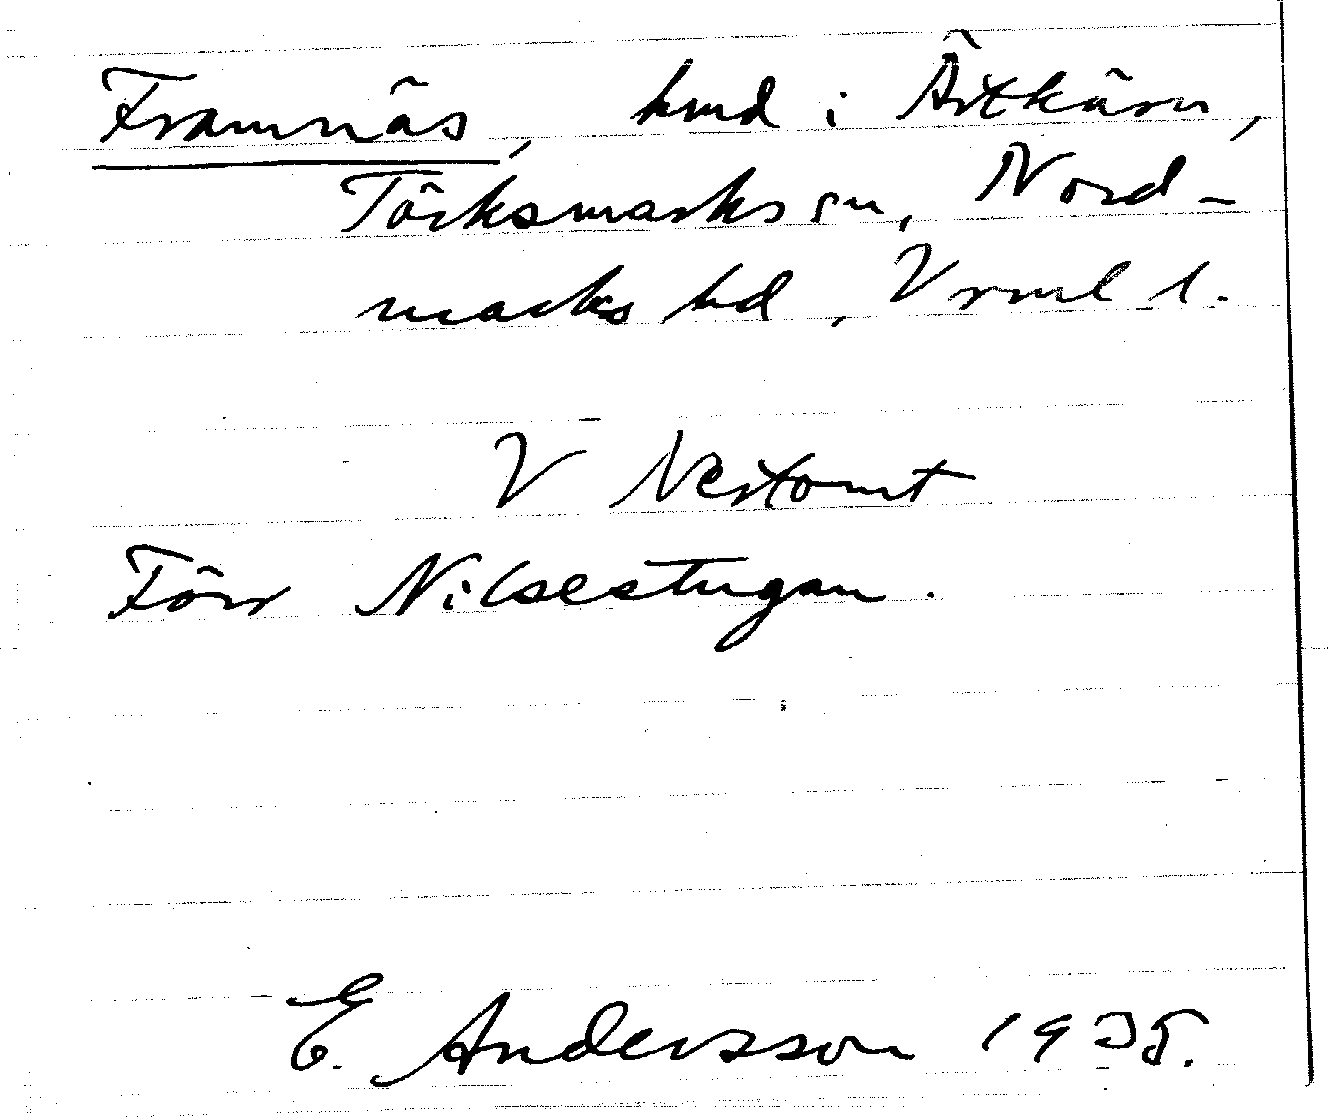 Framnäs, hmd i Ärtkärn,
Töcksmarks sn, Nord-
marks hd, Vrml l.
V Nertomt
Förr Nilsestugan.
E. Andersson 1935.